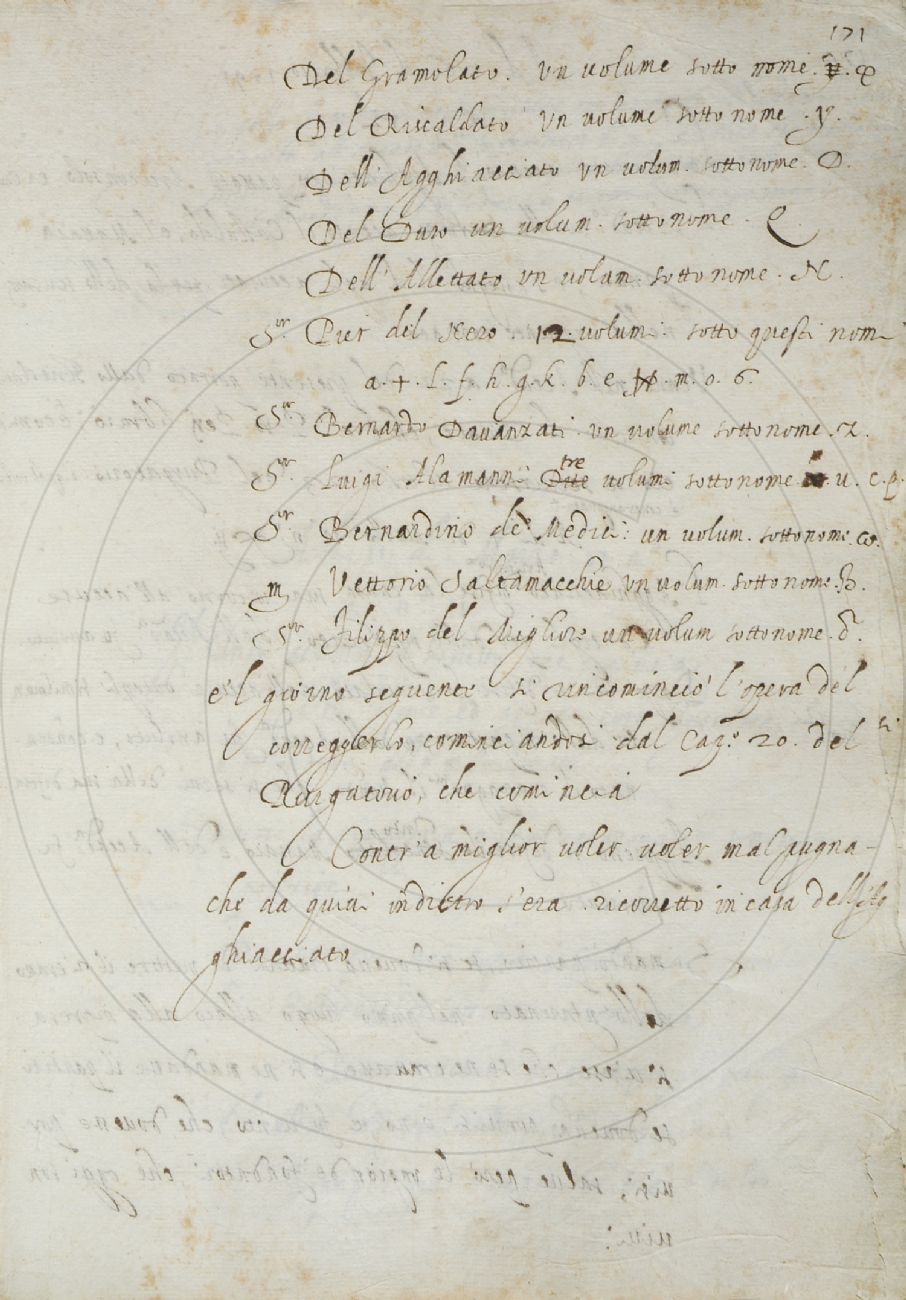 171
Del Gramolato. un volume sotto nome. φ
Del Riscaldato un volume sotto nome .y.
Dell' Agghiacciato un volum. sotto nome. D.
Del Duro un volum. sotto nome. Q
Dell' Allettato un volum. sotto nome. N.
Sor. Pier del Nero. 12. volumi. sotto questi nomi
a. +. l. f. h. g. k. b. e. m. o. 6.
Sor. Bernardo Davanzati un volume sotto nome. z.
Sor. Luigi Alamanni Dite tre volumi sotto nome u. c. p.
Sor. Bernardino de' Medici: un volum. sotto nome. ω.
m. Vettorio Saltamacchie un volum. sotto nome. B.
Sor. Filippo del Migliore un volum sotto nome. d.
e'l giorno seguente si incominciò l'opera del
correggerlo, cominciandosi dal Cap.o 20. del
Purgatorio, che comincia
Contr'a miglior voler voler mal pugna-
che da quivi indietro s'era ricorretto in casa dell'Ag
ghiacciato.